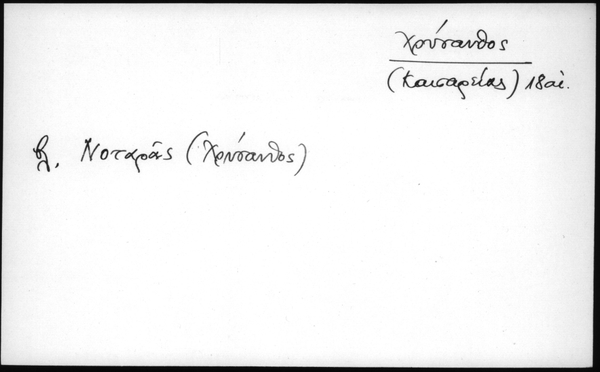 Χρύσανθος
(Καισαρείας) 18 αἰ.
βλ. Νοταρᾶς (Χρύσανθος)